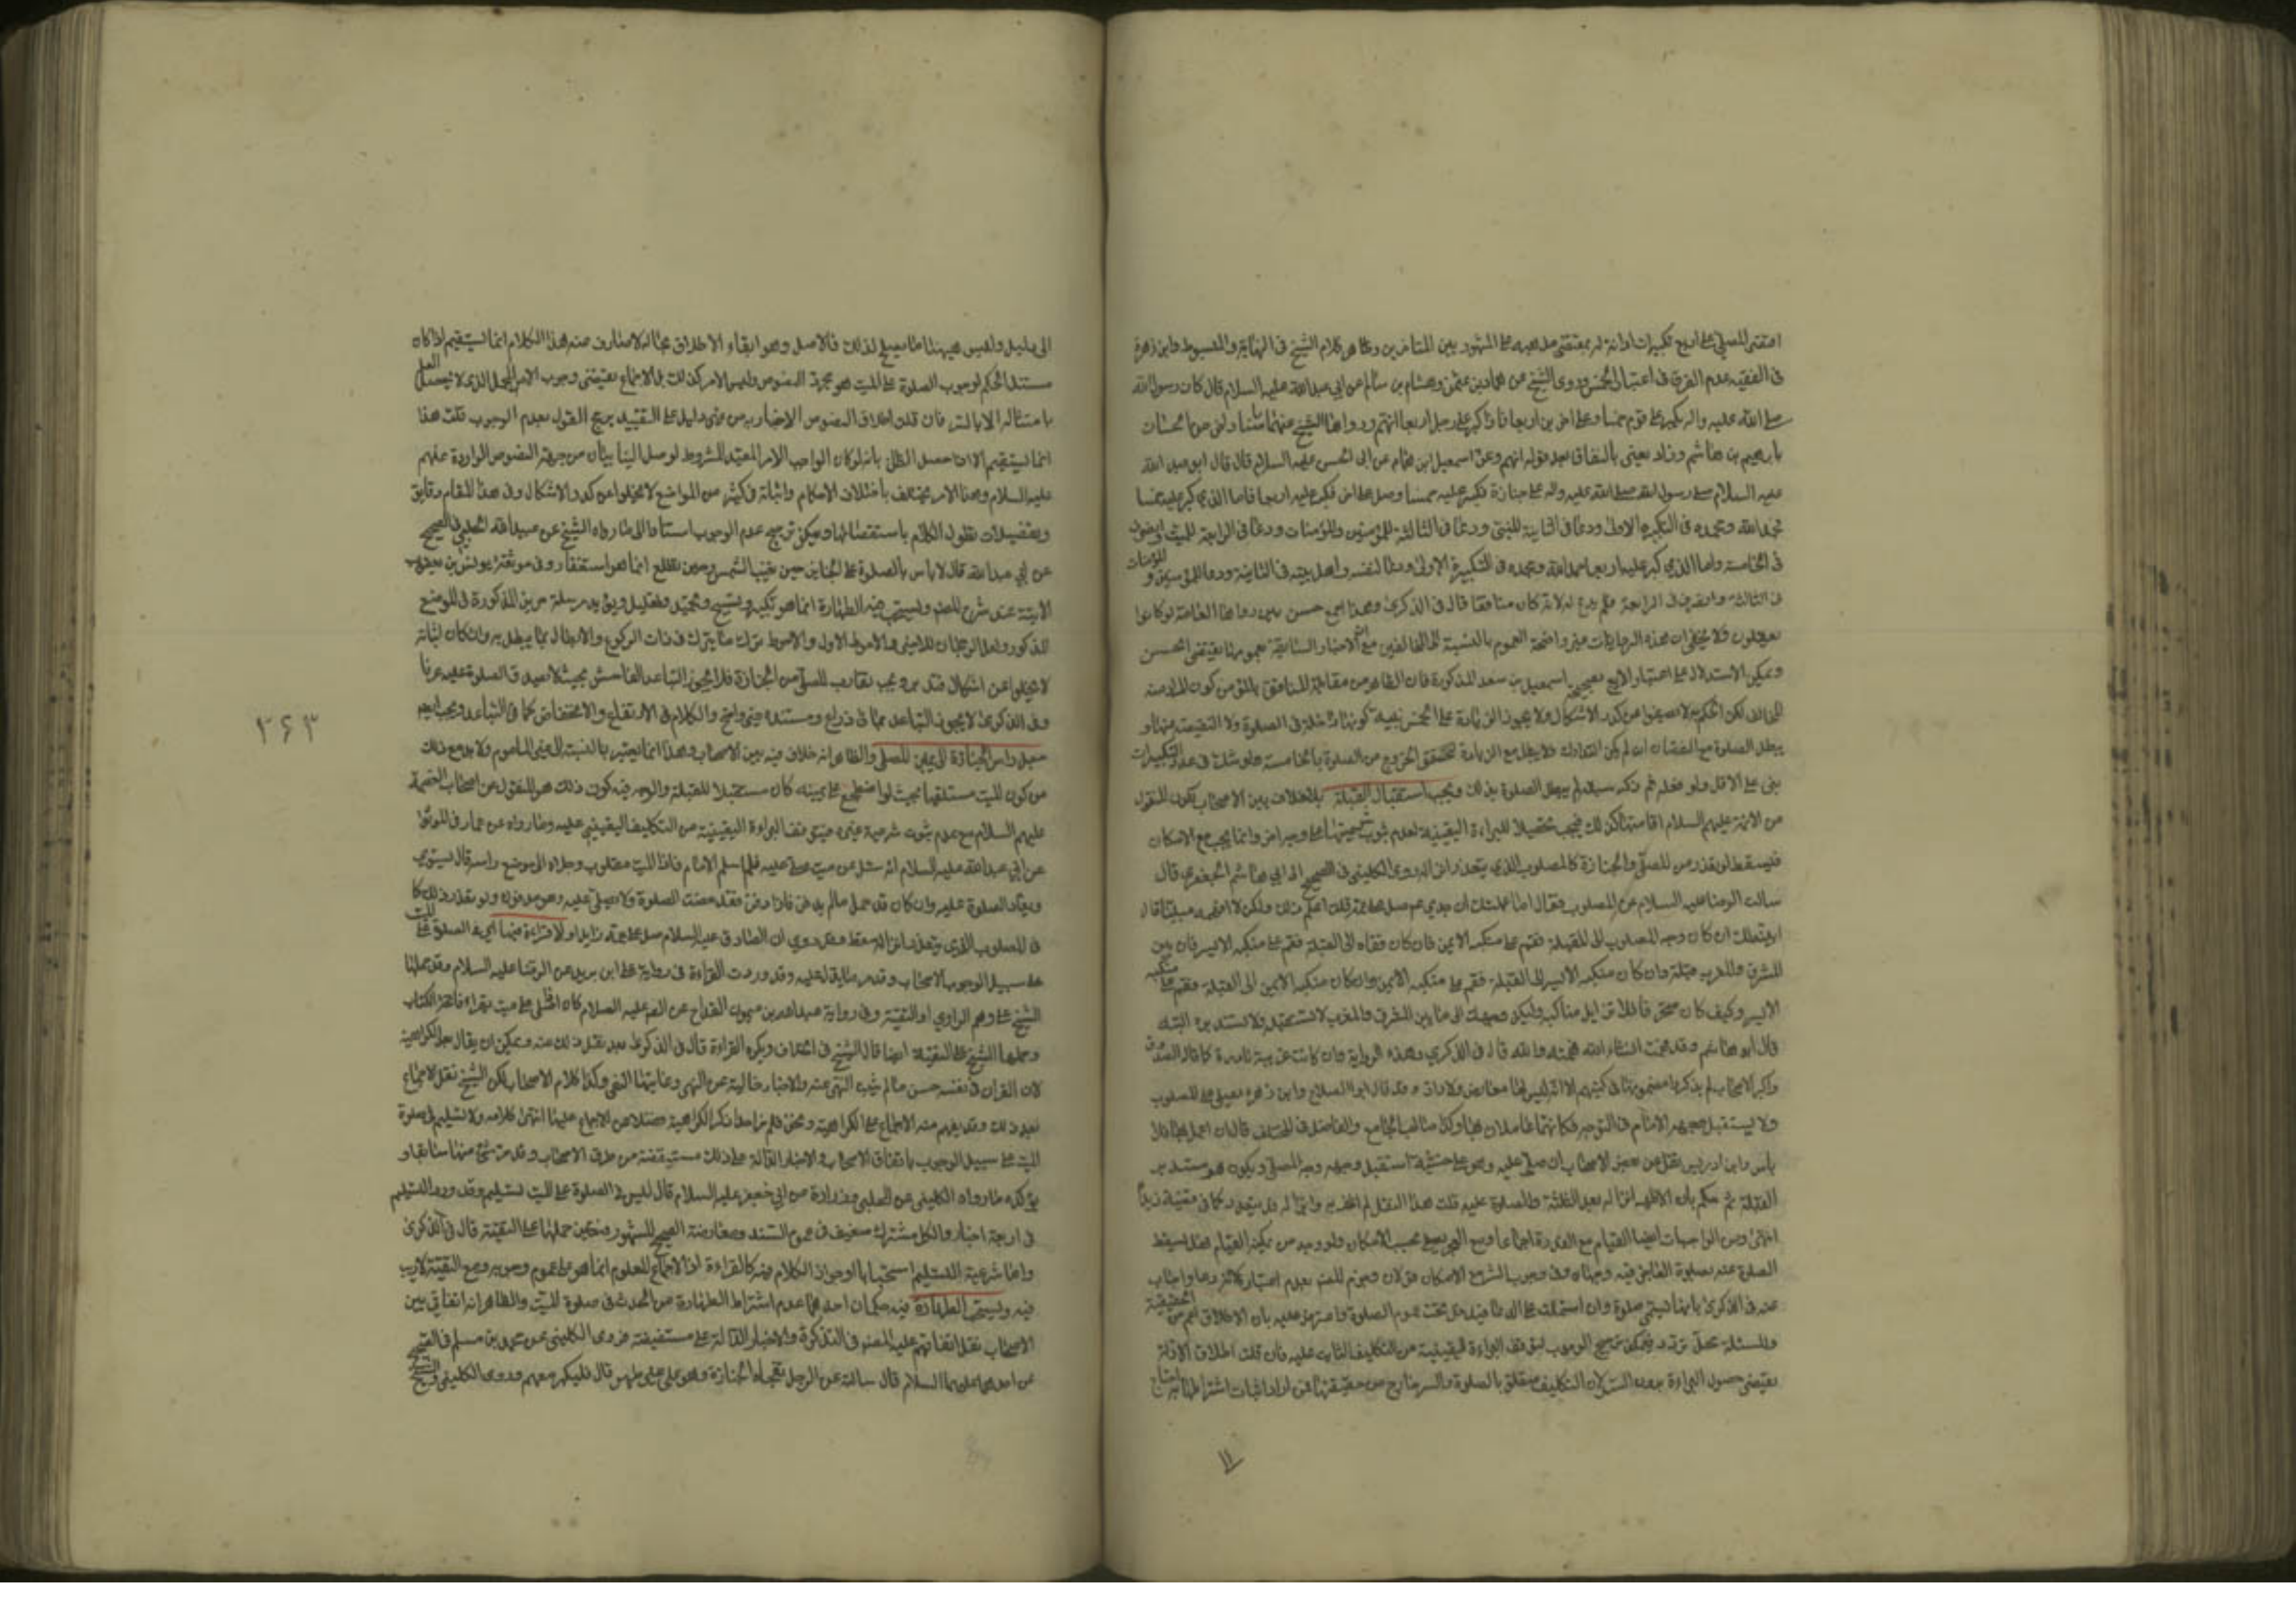 اقتصر المصلي على اربع تكبيرات او انه له بمقتضى مذهبه على المشهور بين المتاخرين وظاهر كلام الشيخ في النهاية والمبسوط وابن زهرة
في الفقيه عدم الفرق في اعتبار الخمس وروى الشيخ عن حماد بن عثمن وهشام بن سالم عن ابي عبدالله عليه السلام قال كان رسول الله
صلى الله عليه واله يكبر على قوم خمسا وعلى اخرين اربعا فاذا كبر على رجل اربعا اتهم ورواها الشيخ عنهما باسناد
بابرهيم بن هاشم وزاد يعني بالنفاق بعد قوله اتهم وعن اسمعيل بن همام عن ابي الحسن عليه السلام قال قال ابو عبد الله
عليه السلام صلى رسول الله صلى الله عليه واله على جنازة فكبر عليه خمسا وصلى على اخر فكبر عليه اربعا فاما الذي كبر عليه خمسا
فحمد الله ومجده في التكبيرة الاولى ودعا في الثانية للنبي ودعا في الثالثة للمؤمنين والمؤمنات ودعا في الرابعة للميت وانصرف
في الخامسة واما الذي كبر عليه اربعا حمد الله ومجده في التكبيرة الاولى ودعا لنفسه واهل بيته في الثانية ودعا للمؤمنين و المؤمنات
في الثالثة وانصرف في الرابعة فلم يدع له لانه كان منافقا قال في الذكرى وهذا خبر حسن
فلا يخفى ان هذه الروايات غير واضحة العموم بالنسبة الى المخالفين مع ان الاخبار السابقة عمومها يقتضي الخمس
ويمكن الاستدلال على اعتبار الاربع بصحيحة اسمعيل بن سعد المذكورة فان الظاهر من مقابلة المنافق بالمؤمن كون المراد منه
المخالف لكن الحكم به لا يصفوا عن كدر الاشكال ولا يجوز الزيادة على الخمس بنية كونها داخلة في الصلوة ولا النقيصة منها و
يبطل الصلوة مع النقصان ان لم يكن التدارك ولا يبطل مع الزيادة لتحقق الخروج من الصلوة بالخامسة ولو شك في عدد التكبيرات
بنى على الاقل ولو فعله ثم ذكر سبقه لم يبطل الصلوة بذلك ويجب استقبال القبلة بلا خلاف بين الاصحاب لكون المنقول
من الائمة عليهم السلام اقامتها كذلك فيجب تحصيلا للبراءة اليقينية لعدم ثوب شرعيتها على وجه اخر وانما يجب مع الامكان
فيسقط لو تعذر من المصلي والجنازة كالمصلوب الذي يتعذر انزاله روى الكليني في الصحيح الى ابي هاشم الجعفري قال
سالت الرضا عليه السلام عن المصلوب فقال اما علمت ان جدي عم صلى على عمه قلت اعلم ذلك ولكن لا افهمه مبينا قال
ابينه لك ان كان وجه المصلوب الى القبلة فقم على منكبه الايمن فان كان قفاه الى القبلة فقم على منكبه الايسر فان بين
المشرق والمغرب قبلة وان كان منكبه الايسر الى القبلة فقم على منكبه الايمن وان كان منكبه الايمن الى القبلة فقم على منكبه
الايسر وكيف كان منحرفا فلا تزايل مناكبه وليكن وجهك الى ما بين المشرق والمغرب ولا تستقبله ولا تستدبره البتة
قال ابو هاشم وقد فهمت انشاء الله فهمته والله قال في الذكرى وهذه الرواية وان كانت غريبة نادرة كما قال الصدوق
واكثر الاصحاب لم يذكروا مضمونها في كتبهم الا انه ليس لها معارض ولا راد وقد قال ابو الصلاح وابن زهرة يصلي على المصلوب
ولا يستقبل وجهه الامام في التوجه فكانهما عاملان بها وكذا صاحب الجامع والفاضل في المختلف قال ان عمل بها فلا
باس وابن ادريس نقل عن بعض الاصحاب ان صلى عليه وهو على خشبة استقبل وجهه وجه المصلي ويكون هو مستدبر
القبلة ثم حكم بان الاظهر انزاله بعد الثلثة والصلوة عليه قلت هذا النقل لم اظفر به وانزاله قد يتعذر كما في قضية زيد
انتهى ومن الواجبات ايضا القيام مع القدرة اجماعا ومع العجز يصلي بحسب الامكان ولو وجد من يمكنه القيام فهل يسقط
الصلوة عنه بصلوة العاجز فيه وجهان وفي وجوب الستر مع الامكان قولان وجزم المصنف بعدم اعتباره
عنه في الذكرى بانها تسمى صلوة وان اشتملت على الدعا فيدخل تحت عموم الصلوة فاعترض عليه بان الاطلاق اعم من الحقيقة
والمسئلة محل تردد فيمكن ترجيح الوجوب لتوقف البراءة اليقينية من التكليف الثابت عليه فان قلت اطلاق الادلة
يقتضي حصول البراءة بدون الستر لان التكليف متعلق بالصلوة والستر خارج من حقيقتها فمن اراد اثبات اشتراطها به احتاج
الى دليل وليس ههنا ما يصلح لذلك فالاصل وهو ابقاء الاطلاق بحاله لا صارف عنه هذا الكلام انما يستقيم اذا كان
مستند الحكم لوجوب الصلوة على الميت هو مجرد النصوص وليس الامر كذلك بل الاجماع يقتضي وجوب الامر المجمل الذي لا يحصل العلم
بامتثاله الا بالستر فان قلت اطلاق النصوص الاخبار به من غير دليل على التقييد يرجح القول بعدم الوجوب قلت هذا
انما يستقيم اذا حصل الظن بانه لو كان الواجب الامر المقيد المشروط لوصل الينا بيان من جهة النصوص الواردة عنهم
عليه السلام وهذا الامر يختلف باختلاف الاحكام واثباته في كثير من المواضع لا يخلوا عن كدر الاشكال وفي هذا المقام دقايق
وتفصيلات يطول الكلام باستقصائها ويمكن ترجيح عدم الوجوب استنادا الى ما رواه الشيخ عن عبيد الله الحلبي في الصحيح
عن ابي عبدالله قال لا باس بالصلوة على الجنايز حين تغيب الشمس وحين تطلع انما هو استغفار وفي موثقة يونس بن يعقوب
الاتية عند شرح المصنف ويستحب فيه الطهارة انما هو تكبير وتسبيح وتحميد وتهليل ويؤيده مرسلة حريز المذكورة في الموضع
المذكور
لا يخلوا عن اشكال ويجب تقارب المصلي من الجنازة فلا يجوز التباعد الفاحش بحيث لا يصدق الصلوة عليه عرفا
وفي الذكرى لا يجوز التباعد بمائتي ذراع ومستنده غير واضح والكلام في الارتفاع والانخفاض كما في التباعد ويجب ايضا
جعل راس الجنازة الى يمين المصلي والظاهر انه لا خلاف فيه بين الاصحاب وهذا انما يعتبر بالنسبة الى غير الماموم ولا بد مع ذلك
من كون الميت مستلقيا بحيث لو اضطجع على يمينه كان مستقبلا للقبلة والوجه فيه كون ذلك هو المنقول عن اصحاب العصمة
عليهم السلام مع عدم ثبوت شرعية غيره فيتوقف البراءة اليقينية من التكليف اليقيني عليه وما رواه عن عمار في الموثق
عن ابي عبدالله عليه السلام انه سئل عن ميت صلي عليه فلما سلم الامام فاذا الميت مقلوب رجلاه الى موضع راسه قال يسوى
ويعاد الصلوة عليه وان كان قد حمل ما لم يدفن فاذا دفن فقد مضت الصلوة ولا يصلى عليه وهو مدفون ولو تعذر ذلك كما
في المصلوب الذي يتعذر انزاله سقط وقد روي ان الصادق عليه السلام صلى على عمه زيد ولا قراءة فيها اي في الصلوة على الميت
على سبيل الوجوب الاصحاب وقد مر ما يدل عليه وقد وردت القراءة في رواية علي بن سويد عن الرضا عليه السلام وقد حملها
الشيخ على وهم الراوي او التقية وفي رواية عبد الله بن ميمون القداح عن الصم عليه السلام كان اذا صلى على ميت يقراء فاتحة الكتاب
وحملها الشيخ على التقية ايضا قال الشيخ في الخلاف ويكره القراءة قال في الذكرى بعد نقل ذلك عنه ويمكن ان يقال بعدم الكراهية
لان القران في نفسه حسن ما لم يثبت النهي عنه والاخبار خالية عن النهي وغايتها النفي وكذا كلام الاصحاب لكن الشيخ نقل الاجماع
بعد ذلك وقد يفهم منه الاجماع على الكراهية ونحن فلم نر احدا ذكر الكراهية فضلا عن الاجماع عليها انتهى كلامه ولا تسليم في صلوة
الميت على سبيل الوجوب باتفاق الاصحاب والاخبار الدالة على ذلك مستفيضة من طرق الاصحاب وقد مر شئ منها سابقا و
يؤكده ما رواه الكليني عن الحلبي وزرارة عن ابي جعفر عليه السلام قال ليس في الصلوة على الميت تسليم وقد ورد التسليم
في اربعة اخبار والكل مشترك في ضعف السند ومعارضة الصحيح المشهور فتعين حملها على التقية قال في الذكرى
واما شرعية التسليم استحبابا او جواز الكلام فيه كالقراءة اذ الاجماع المعلوم انما هو على عدم وجوبه ومع التقية لا ريب
فيه ويستحب الطهارة فيه حكمان احدهما عدم اشتراط الطهارة من الحدث في صلوة الميت والظاهر انه اتفاقي بين
الاصحاب نقل اتفاقهم عليه المصنف في التذكرة والاخبار الدالة عليه مستفيضة فروى الكليني عن محمد بن مسلم في الصحيح
عن احدهما عليهما السلام قال سالته عن الرجل تفجاه الجنازة وهو على غير طهر قال فليكبر معهم وروى الكليني والشيخ
٣٦٣